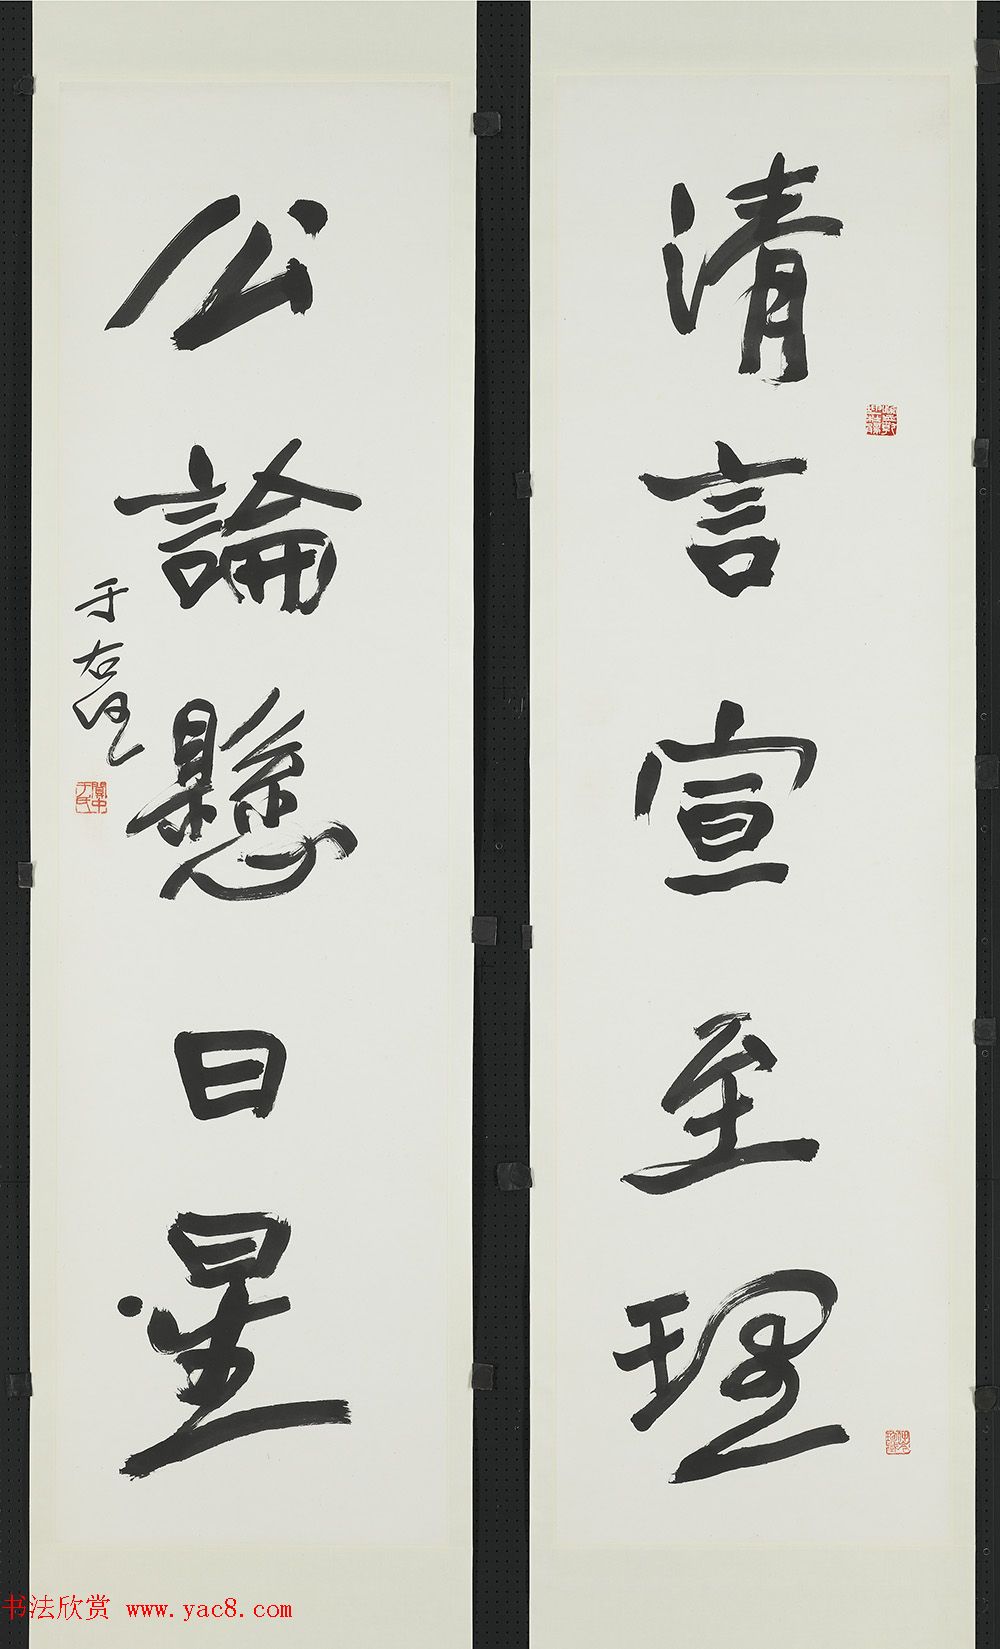 清言宣至理
公論懸日星
于右任
關中于氏
书法欣赏 www.yac8.com